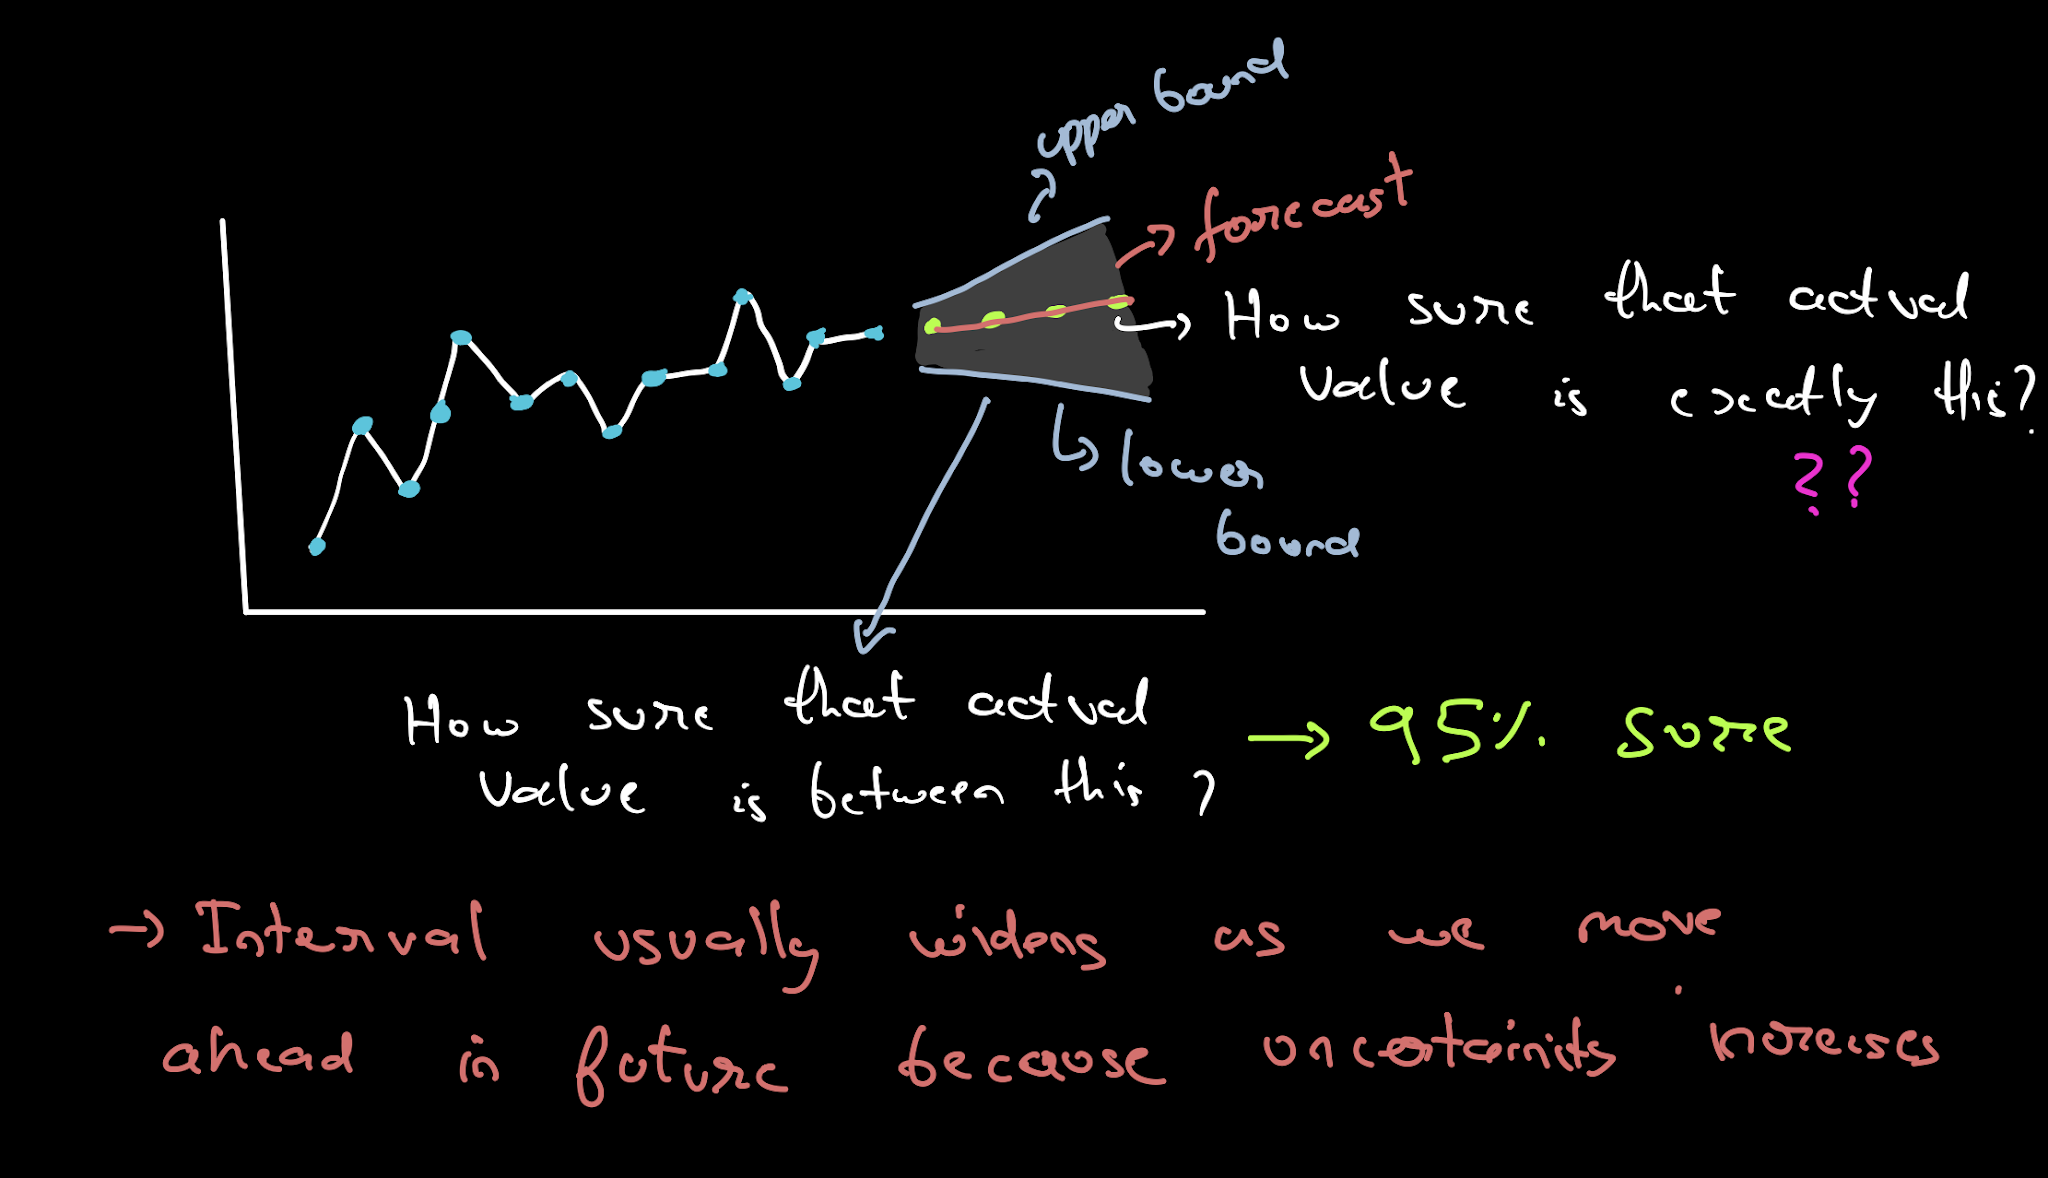 upper bound
forecast
How sure that actual
value is exactly this?
??
lower
bound
How sure that actual
value is between this ?
→ 95% sure
→ Interval usually widens as we move
ahead in future because uncertainity increases